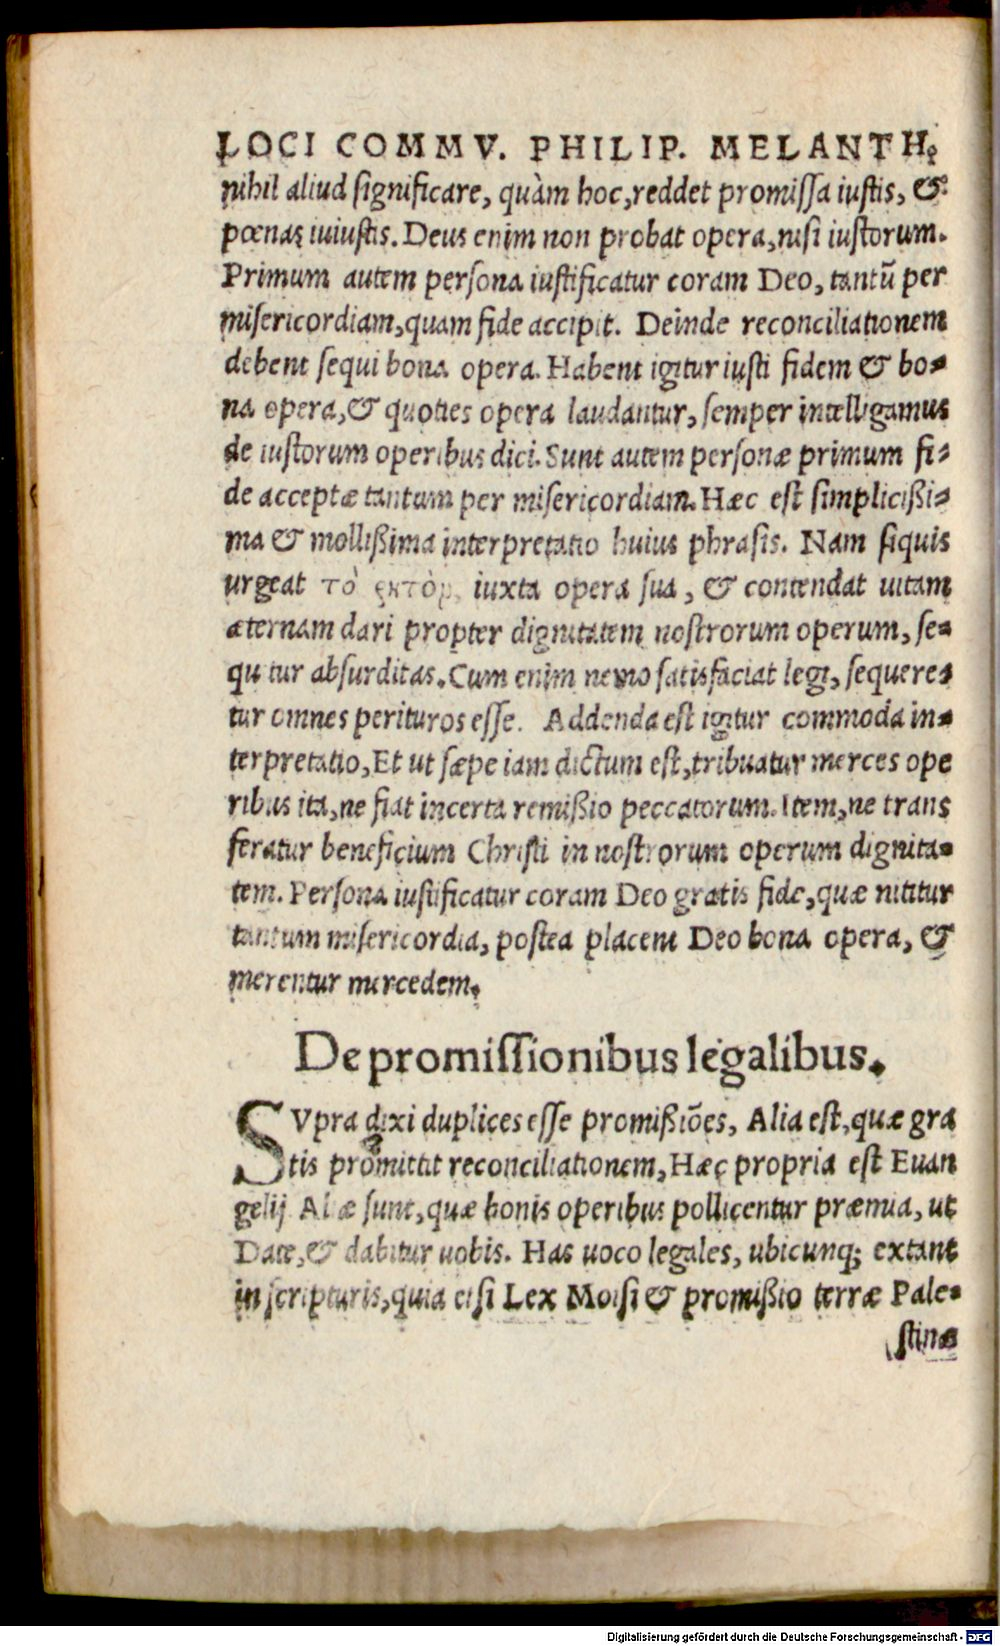 LOCI COMMV. PHILIP. MELANTH.
nihil aliud significare, quàm hoc, reddet promissa iustis, &
pœnas iuiustis. Deus enim non probat opera, nisi iustorum.
Primum autem persona iustificatur coram Deo, tantū per
misericordiam, quam fide accipit. Deinde reconciliationem
debent sequi bona opera. Habent igitur iusti fidem & bo-
na opera, & quoties opera laudantur, semper intelligamus
de iustorum operibus dici. Sunt autem personæ primum fi-
de acceptæ tantum per misericordiam. Hæc est simplicißi-
ma & mollißima interpretatio huius phrasis. Nam siquis
urgeat τὸ iuxta opera sua, & contendat uitam
æternam dari propter dignitatem nostrorum operum, se-
quitur absurditas. Cum enim nemo satisfaciat legi, sequere-
tur omnes perituros esse. Addenda est igitur commoda in-
terpretatio, Et ut sæpe iam dictum est, tribuatur merces ope
ribus ita, ne fiat incerta remißio peccatorum. Item, ne trans
feratur beneficium Christi in nostrorum operum dignita-
tem. Persona iustificatur coram Deo gratis fide, quæ nititur
tantum misericordia, postea placent Deo bona opera, &
merentur mercedem.
De promissionibus legalibus.
SVpra dixi duplices esse promißiōes, Alia est, quæ gra
tis promittit reconciliationem, Hæc propria est Euan
gelij. Aliæ sunt, quæ bonis operibus pollicentur præmia, ut
Date, & dabitur uobis. Has uoco legales, ubicunq; extant
in scripturis, quia etsi Lex Moisi & promißio terræ Pale-
stinæ
Digitalisierung gefördert durch die Deutsche Forschungsgemeinschaft - DFG